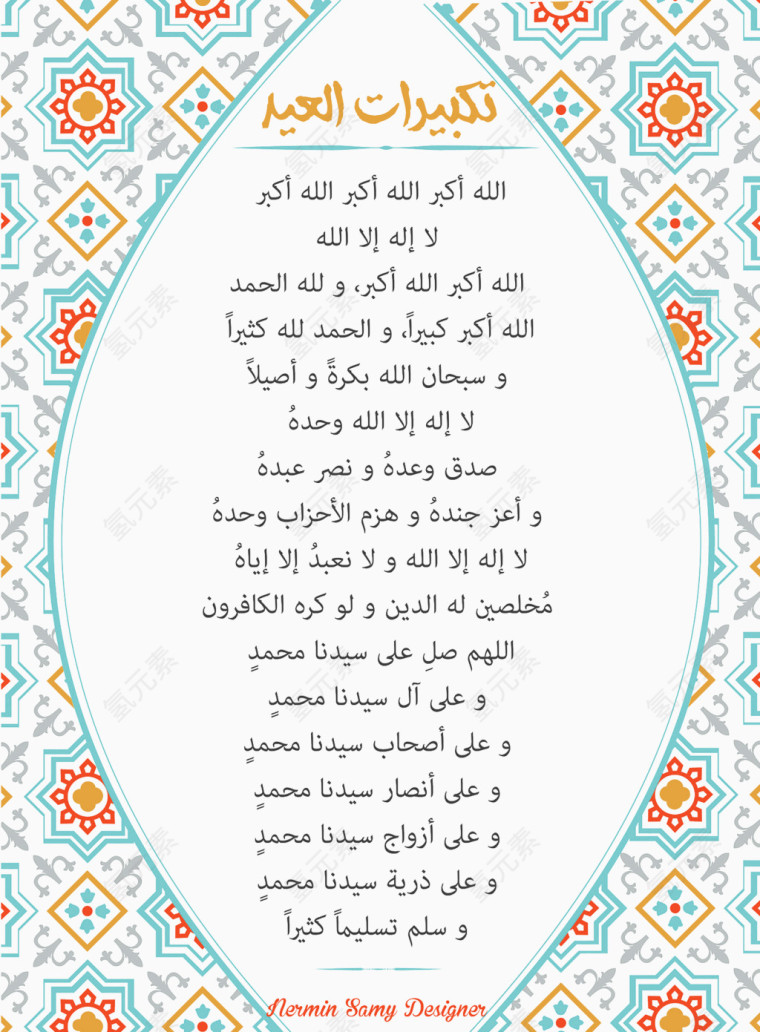 تكبيرات العيد
الله أكبر الله أكبر الله أكبر
لا إله إلا الله
الله أكبر الله أكبر، و لله الحمد
الله أكبر كبيراً، و الحمد لله كثيراً
و سبحان الله بكرةً و أصيلاً
لا إله إلا الله وحدهُ
صدق وعدهُ و نصر عبدهُ
و أعز جندهُ و هزم الأحزاب وحدهُ
لا إله إلا الله و لا نعبدُ إلا إياهُ
مُخلصين له الدين و لو كره الكافرون
اللهم صلِ على سيدنا محمدٍ
و على آل سيدنا محمدٍ
و على أصحاب سيدنا محمدٍ
و على أنصار سيدنا محمدٍ
و على أزواج سيدنا محمدٍ
و على ذرية سيدنا محمدٍ
و سلم تسليماً كثيراً
Nermin Samy Designer
氢元素